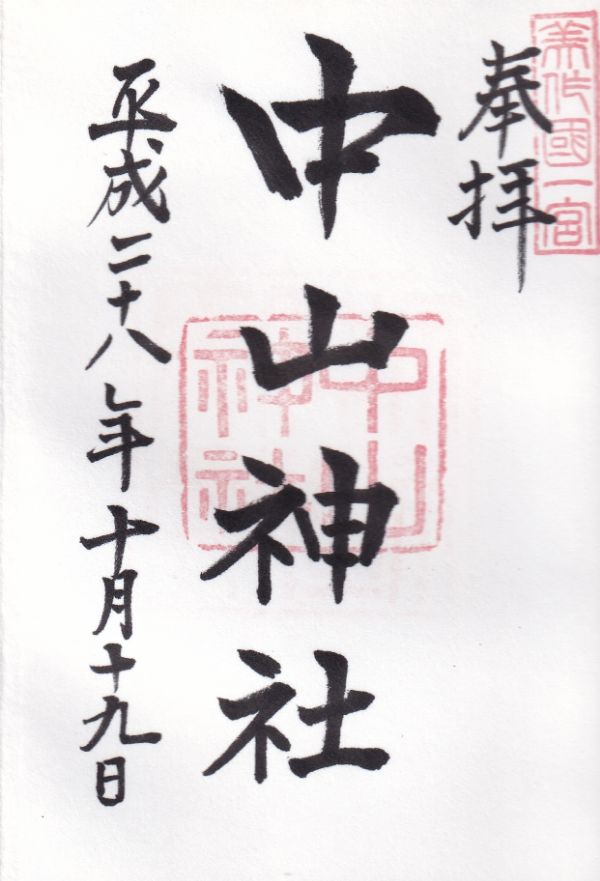 美作國一宮
奉拝
中山神社
中山神社
平成二十八年十月十九日